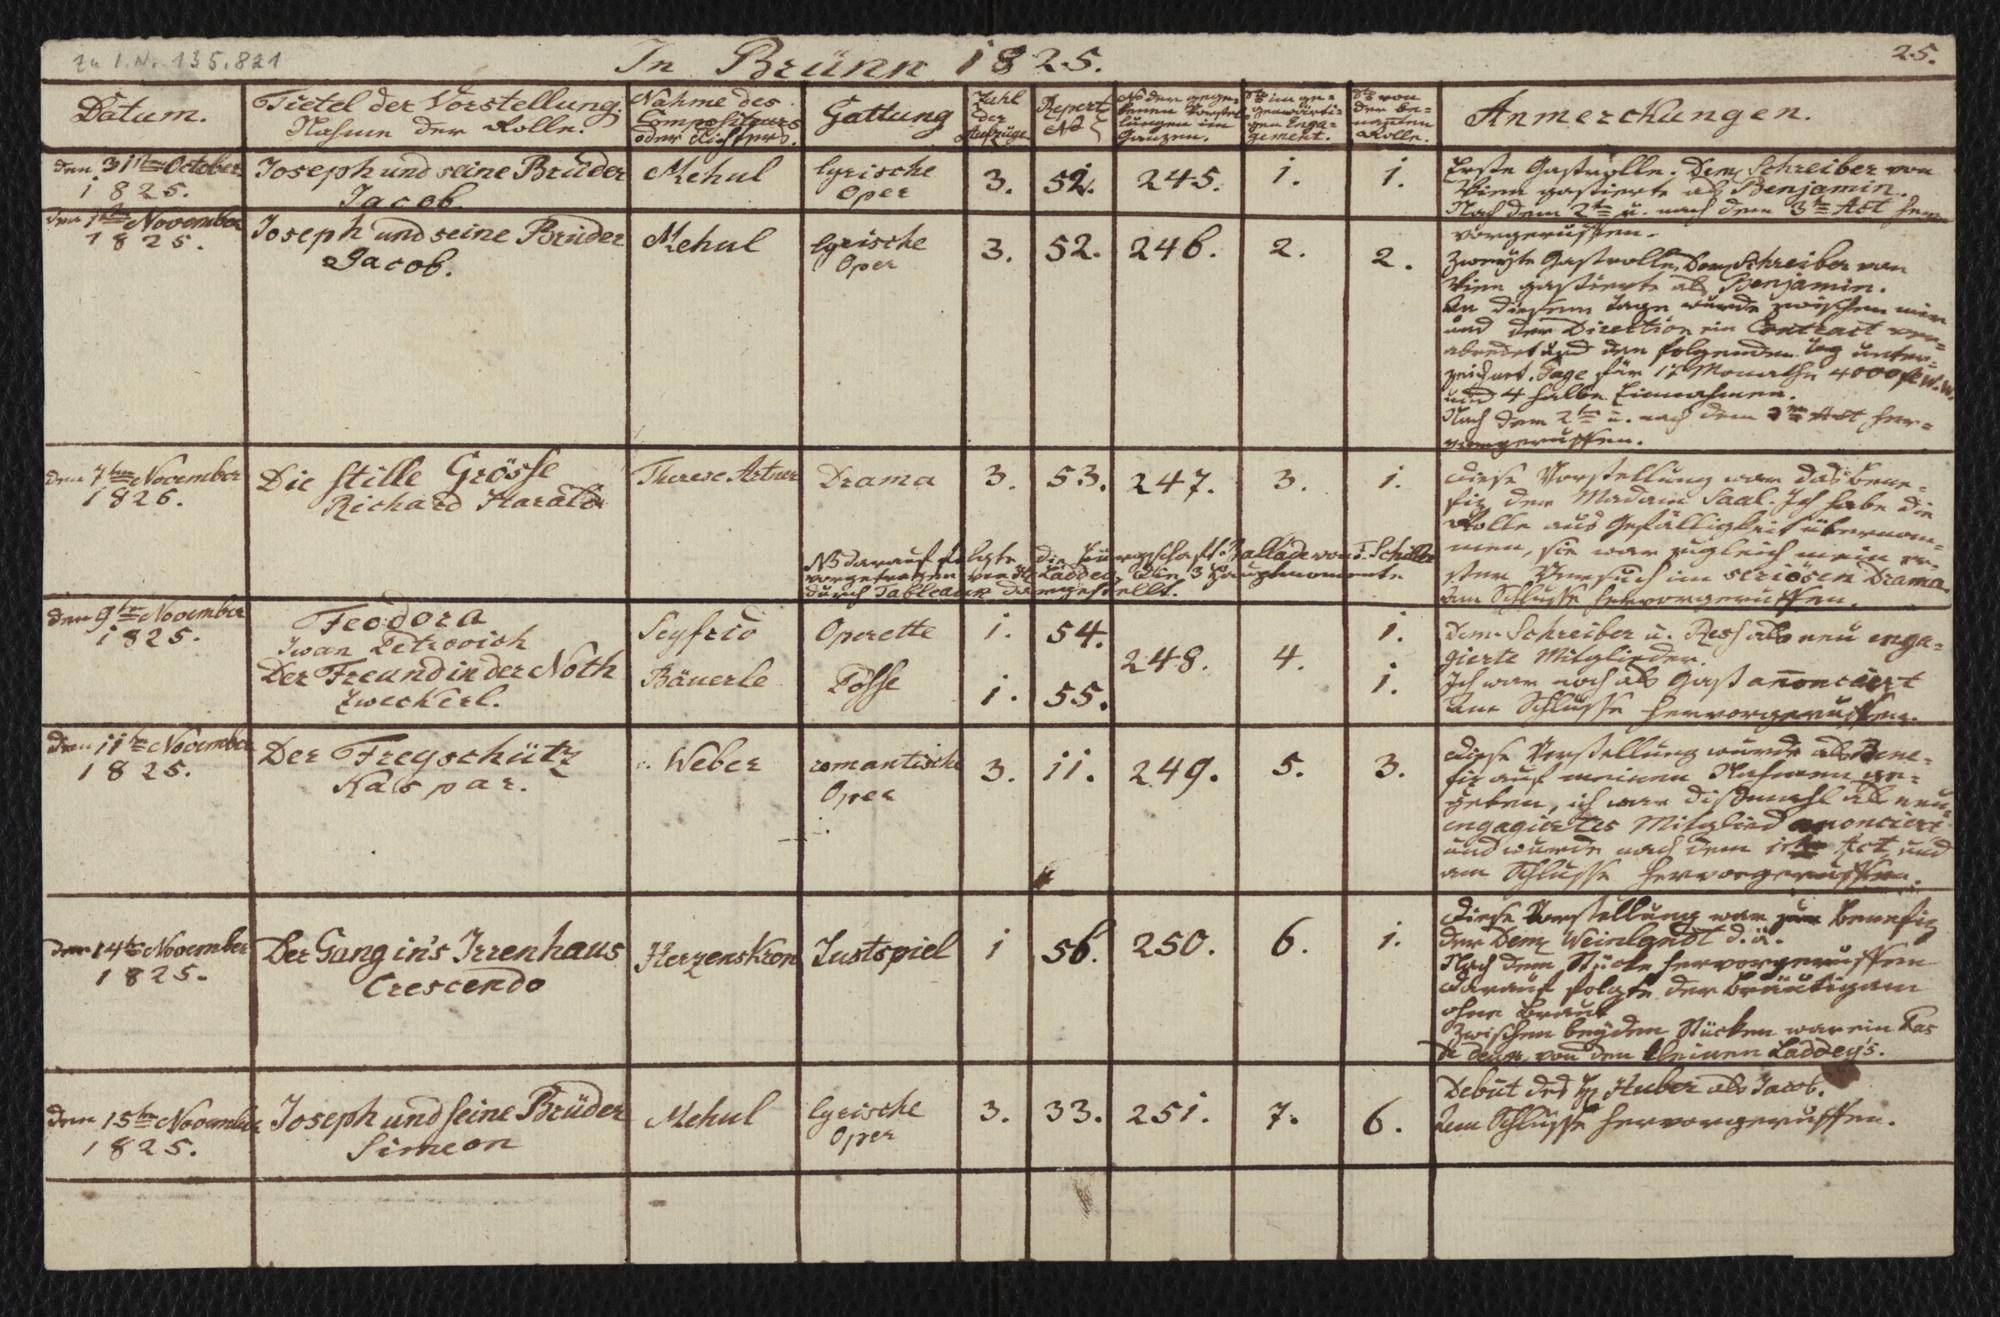 zu I.N. 135.821
In Brünn 1825.
25.
Datum.
Tietel der Vorstellung.
Nahme der Rolle.
Nahme des
Compositeurs
oder Dichters.
Gattung
Zahl
der
Aufzüge
Repert
No
No der gege-
benen Vorstel-
lungen im
Ganzen.
dto im ge-
genwärti-
gen Enga-
gement.
dto von
der be-
nannten
Rolle.
Anmerckungen.
den 31ten October
1825.
Joseph und seine Brüder
Jacob
Mehul
lyrische
Oper
3.
52.
245.
1.
1.
Erste Gastrolle. Dem. Schreiber von
Wien gastierte als Benjamin.
Nach dem 2ten u. nach dem 3ten Act her-
vorgeruffen.
den 1ten November
1825.
Joseph und seine Brüder
Jacob.
Mehul
lyrische
Oper
3.
52.
246.
2.
2.
Zweyte Gastrolle, Dem. Schreiber von
Wien gastierte als Benjamin.
An diesem Tage wurde zwischen mir
und der Direktion ein Contract ver-
abredet und den folgenden Tag unter-
zeichnet. Gage für 17 Monathe 4000 fl W.W.
und 4 halbe Einnahmen.
Nach dem 2ten u. nach dem 3ten Act her-
vorgeruffen.
den 7ten November
1826.
Die stille Grösse
Richard Harald
Therese Artner
Drama
3.
53.
247.
3.
1.
Diese Vorstellung war das Bene-
fiz der Madam Saal. Ich habe die
Rolle aus Gefälligkeit übernom-
men, sie war zugleich mein er-
ster Versuch im seriösen Drama
am Schlusse hervorgeruffen.
NB darauf folgte die Bürgschaft Ballade von F. Schiller
vorgetragen von H. Laddey, die 3 Hauptmomente
durch Tableaux dargestellt.
den 9ten November
1825.
Feodora
Iwan Petrovich
Der Freund in der Noth
Zweckerl.
Seyfrid
Bäuerle
Operette
Posse
1.
1.
54.
55.
248.
4.
1.
1.
Dem. Schreiber u. Resch als neu enga-
gierte Mitglieder.
Ich war noch als Gast anonciert
am Schlusse hervorgeruffen.
den 11ten November
1825.
Der Freyschütz
Kaspar.
v. Weber
romantische
Oper
3.
11.
249.
5.
3.
Diese Vorstellung wurde als Bene-
fiz auf meinen Nahmen ge-
geben, ich war dissmahl als neu
engagiertes Mitglied anonciert
und wurde nach dem 1ten Act und
am Schlusse hervorgeruffen.
den 14ten November
1825.
Der Gang in's Irrenhaus
Crescendo
Herzenskron
Lustspiel
1
56.
250.
6.
1.
Diese Vorstellung war zum Benefiz
der Dem. Weinlandt d.ä.
Nach dem Stücke hervorgeruffen
Darauf folgte der Bräutigam
ohne Braut
Zwischen beyden Stücken war ein Pas
de deux von den kleinen Laddey's.
den 15ten November
1825.
Joseph und seine Brüder
Simeon
Mehul
lyrische
Oper
3.
33.
251.
7.
6.
Debut des H. Huber als Jacob.
Am Schlusse hervorgeruffen.